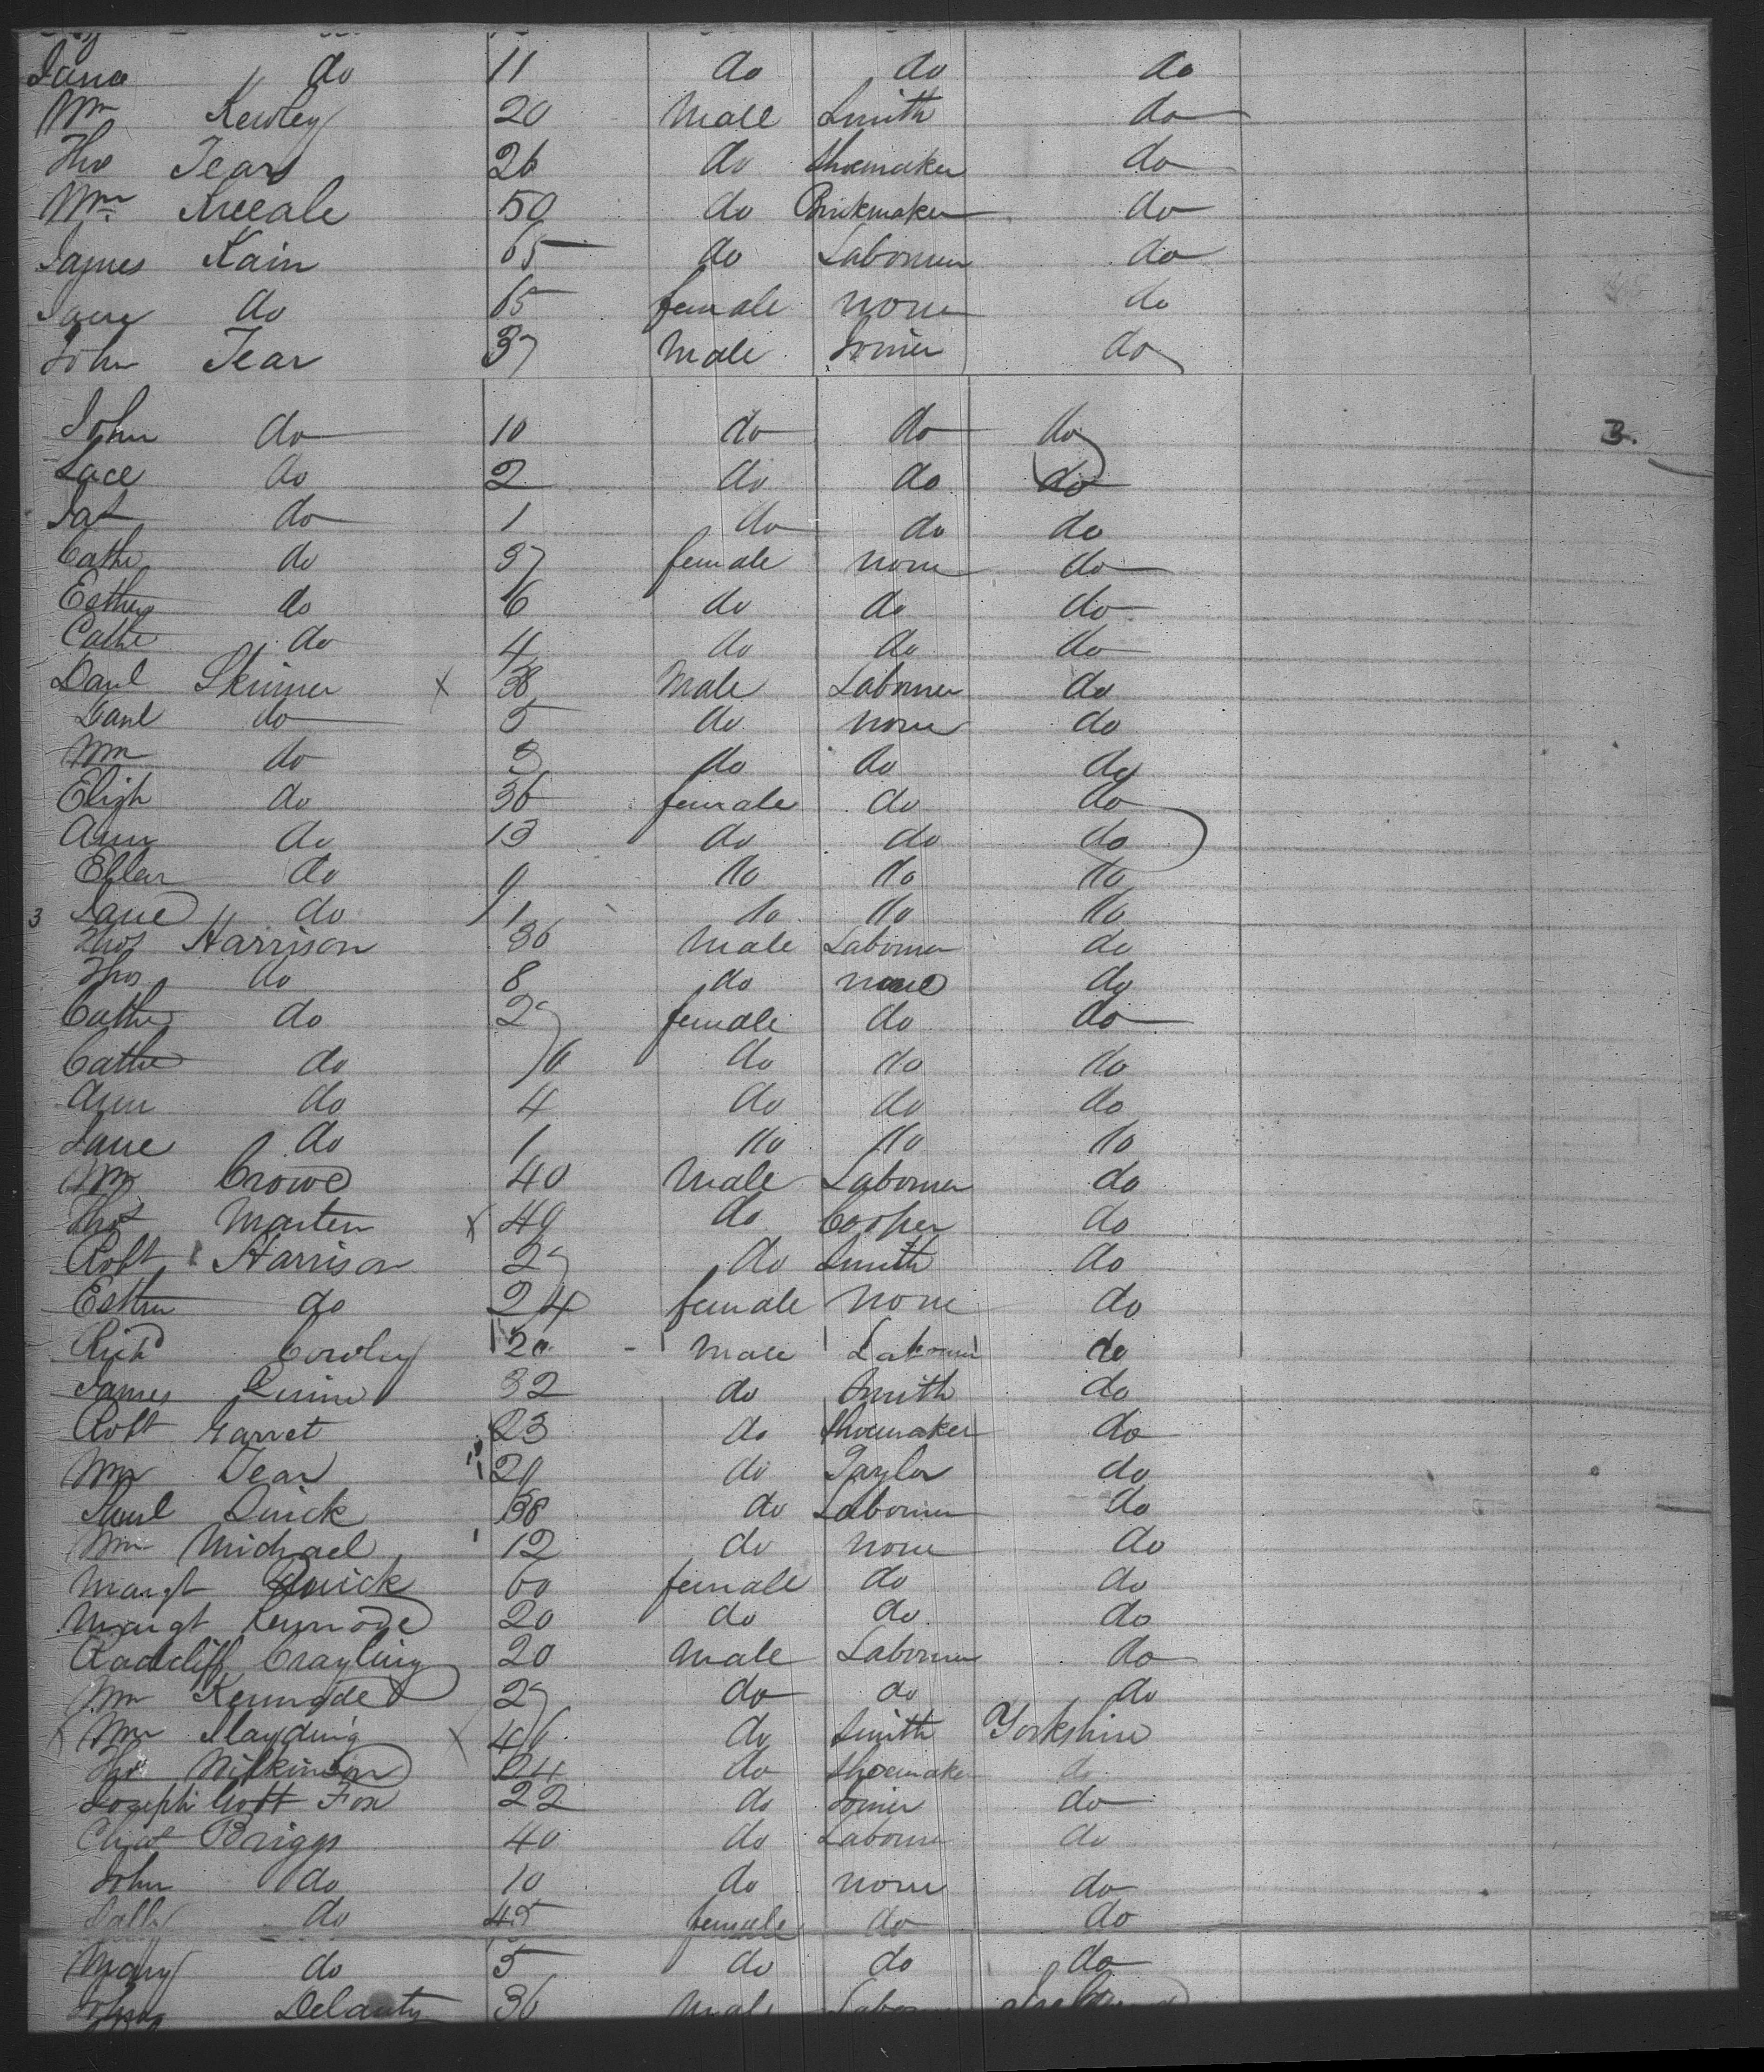 Jane do 11 do do do
Wm Kewley 20 Male Smith do
Tho Tear 26 do Shoemaker do
Wm Kneale 50 do Brickmaker do
James Kain 65 do Labourer do
Jane do 65 female none do
John Tear 37 Male Joiner do
John do 10 do do do 3.
Lace do 2 do do do
Pat do 1 do do do
Cathe do 37 female none do
Esther do 6 do do do
Cathe do 4 do do do
Danl Skinner x 38 Male Labourer do
Danl do 5 do none do
Wm do 3 do do do
Elizh do 36 female do do
Ann do 13 do do do
Ellen do 9 do do do
3 Jane do 1 do do do
Thos Harrison 36 Male Labourer do
Thos do 8 do none do
Cathe do 27 female do do
Cathe do 6 do do do
Ann do 4 do do do
Jane do 1 do do do
Wm Crowe 40 Male Labourer do
Thos Marten x 49 do Cooper do
Robt Harrison 27 do Smith do
Esther do 24 female none do
Richd Cowley 20 Male Labourer do
James Quine 32 do Smith do
Robt Garret 23 do Shoemaker do
Wm Tear 29 do Taylor do
Paul Quick 38 do Labourer do
Wm Michael 12 do none do
Margt Quick 60 female do do
Margt Kennode 20 do do do
Radcliff Crayling 20 Male Labourer do
Wm Kennode 27 do do do
x Wm x 46 do Smith Yorkshire
Tho Wilkinson 24 do Shoemaker do
Joseph Gott Fox 22 do Joiner do
Christ Briggs 40 do Labourer do
John do 10 do none do
Sally do 45 female do do
Mary do 5 do do do
John Delanty 36 Male Labourer Ireland